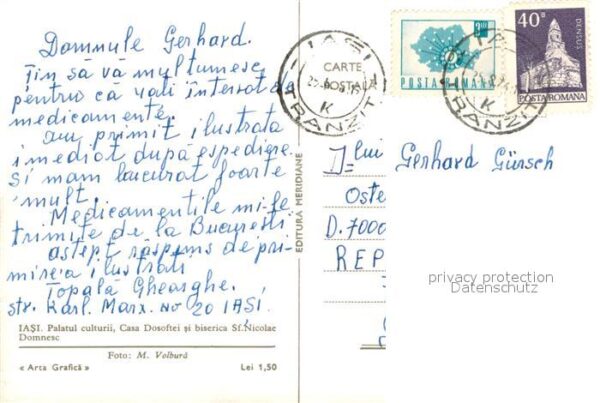 Domnule Gerhard.
Țin să vă mulțumesc
pentru că vați interesat de
medicamente.
am primit ilustrata
imediat după espediere
și mam bucurat foarte
mult.
Medicamentile mi-le
trimite de la București
aștept răspuns de pri-
mirea ilustrati
Țopală Gheorghe.
str. Karl. Marx. No 20 IAȘI.
IAȘI. Palatul culturii, Casa Dosoftei și biserica Sf. Nicolae
Domnesc
Foto: M. Volbură
« Arta Grafică » Lei 1,50
EDITURA MERIDIANE
CARTE
POȘTALĂ
IAȘI
TRANZIT
K
POSTA ROMANA
40 B
DENSUȘ
POSTA ROMANA
TRANZIT
K
D-lui
Gerhard Gürsch
Oste
D. 7000
REP
privacy protection
Datenschutz